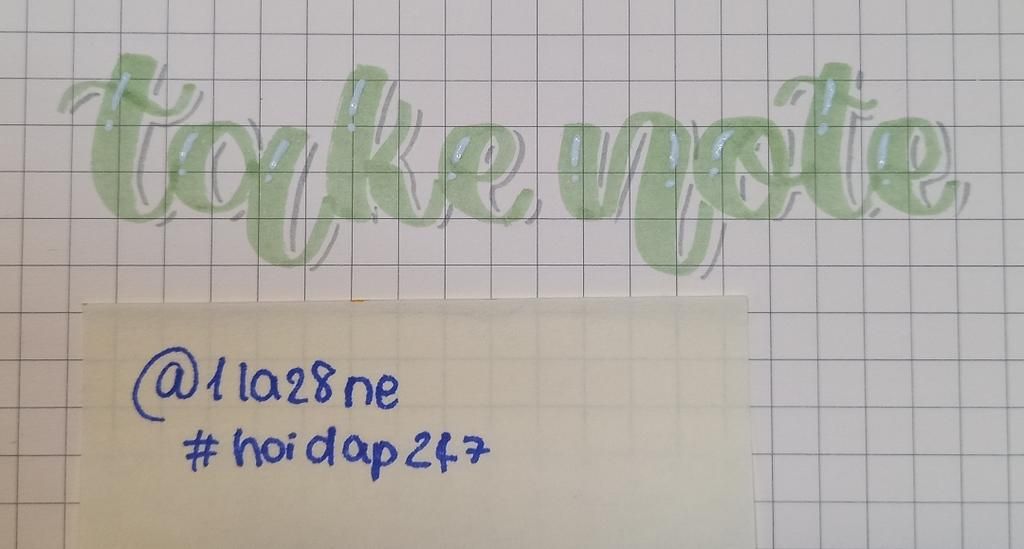 take note
@1la28ne
#hoidap247